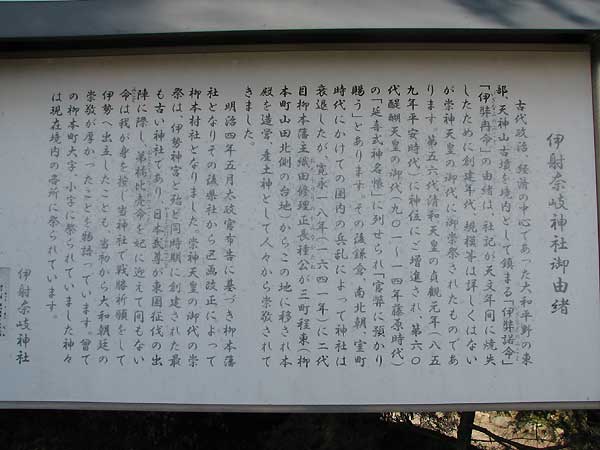 伊射奈岐神社御由緒
古代政治、経済の中心であった大和平野の東
部、天神山古墳を境内として鎮まる「伊弉諾命」
「伊弉冉命」の由緒は、社記が天文年間に焼失
したために創建年代、規模等は詳しくはない
が崇神天皇の御代に御崇祭されたものであ
ります。第五六代清和天皇の貞観元年（八五
九年平安時代）に神位にご増進され、第六〇
代醍醐天皇の御代（九〇一〜一四年藤原時代）
の「延喜式神名帳」に列せられ「官幣に預かり
賜う」とあります。その後鎌倉、南北朝、室町
時代にかけての国内の兵乱によって神社は
衰退したが、寛永一八年（一六四一年）に二代
目柳本藩主織田修理正長種公が三町程東（柳
本町山田北側の台地）からこの地に移され本
殿を造営、産土神として人々から崇敬されて
きました。
明治四年五月太政官布告に基づき柳本藩
社となりその後県社から区画改正によって
柳本村社となりました。崇神天皇の御代の崇
祭は、伊勢神宮と殆ど同時期に創建された最
も古い神社であり、日本武尊が東国征伐の出
陣に際し、弟橘比売命を妃に迎えて間もない
命は我が身を按し当神社で戦勝祈願をして
伊勢へ出立したことも、当初から大和朝廷の
崇敬が厚かったことを物語っています。曽て
の柳本町大字、小字に祭られていました神々
は現在境内の各所に祭られています。
伊射奈岐神社